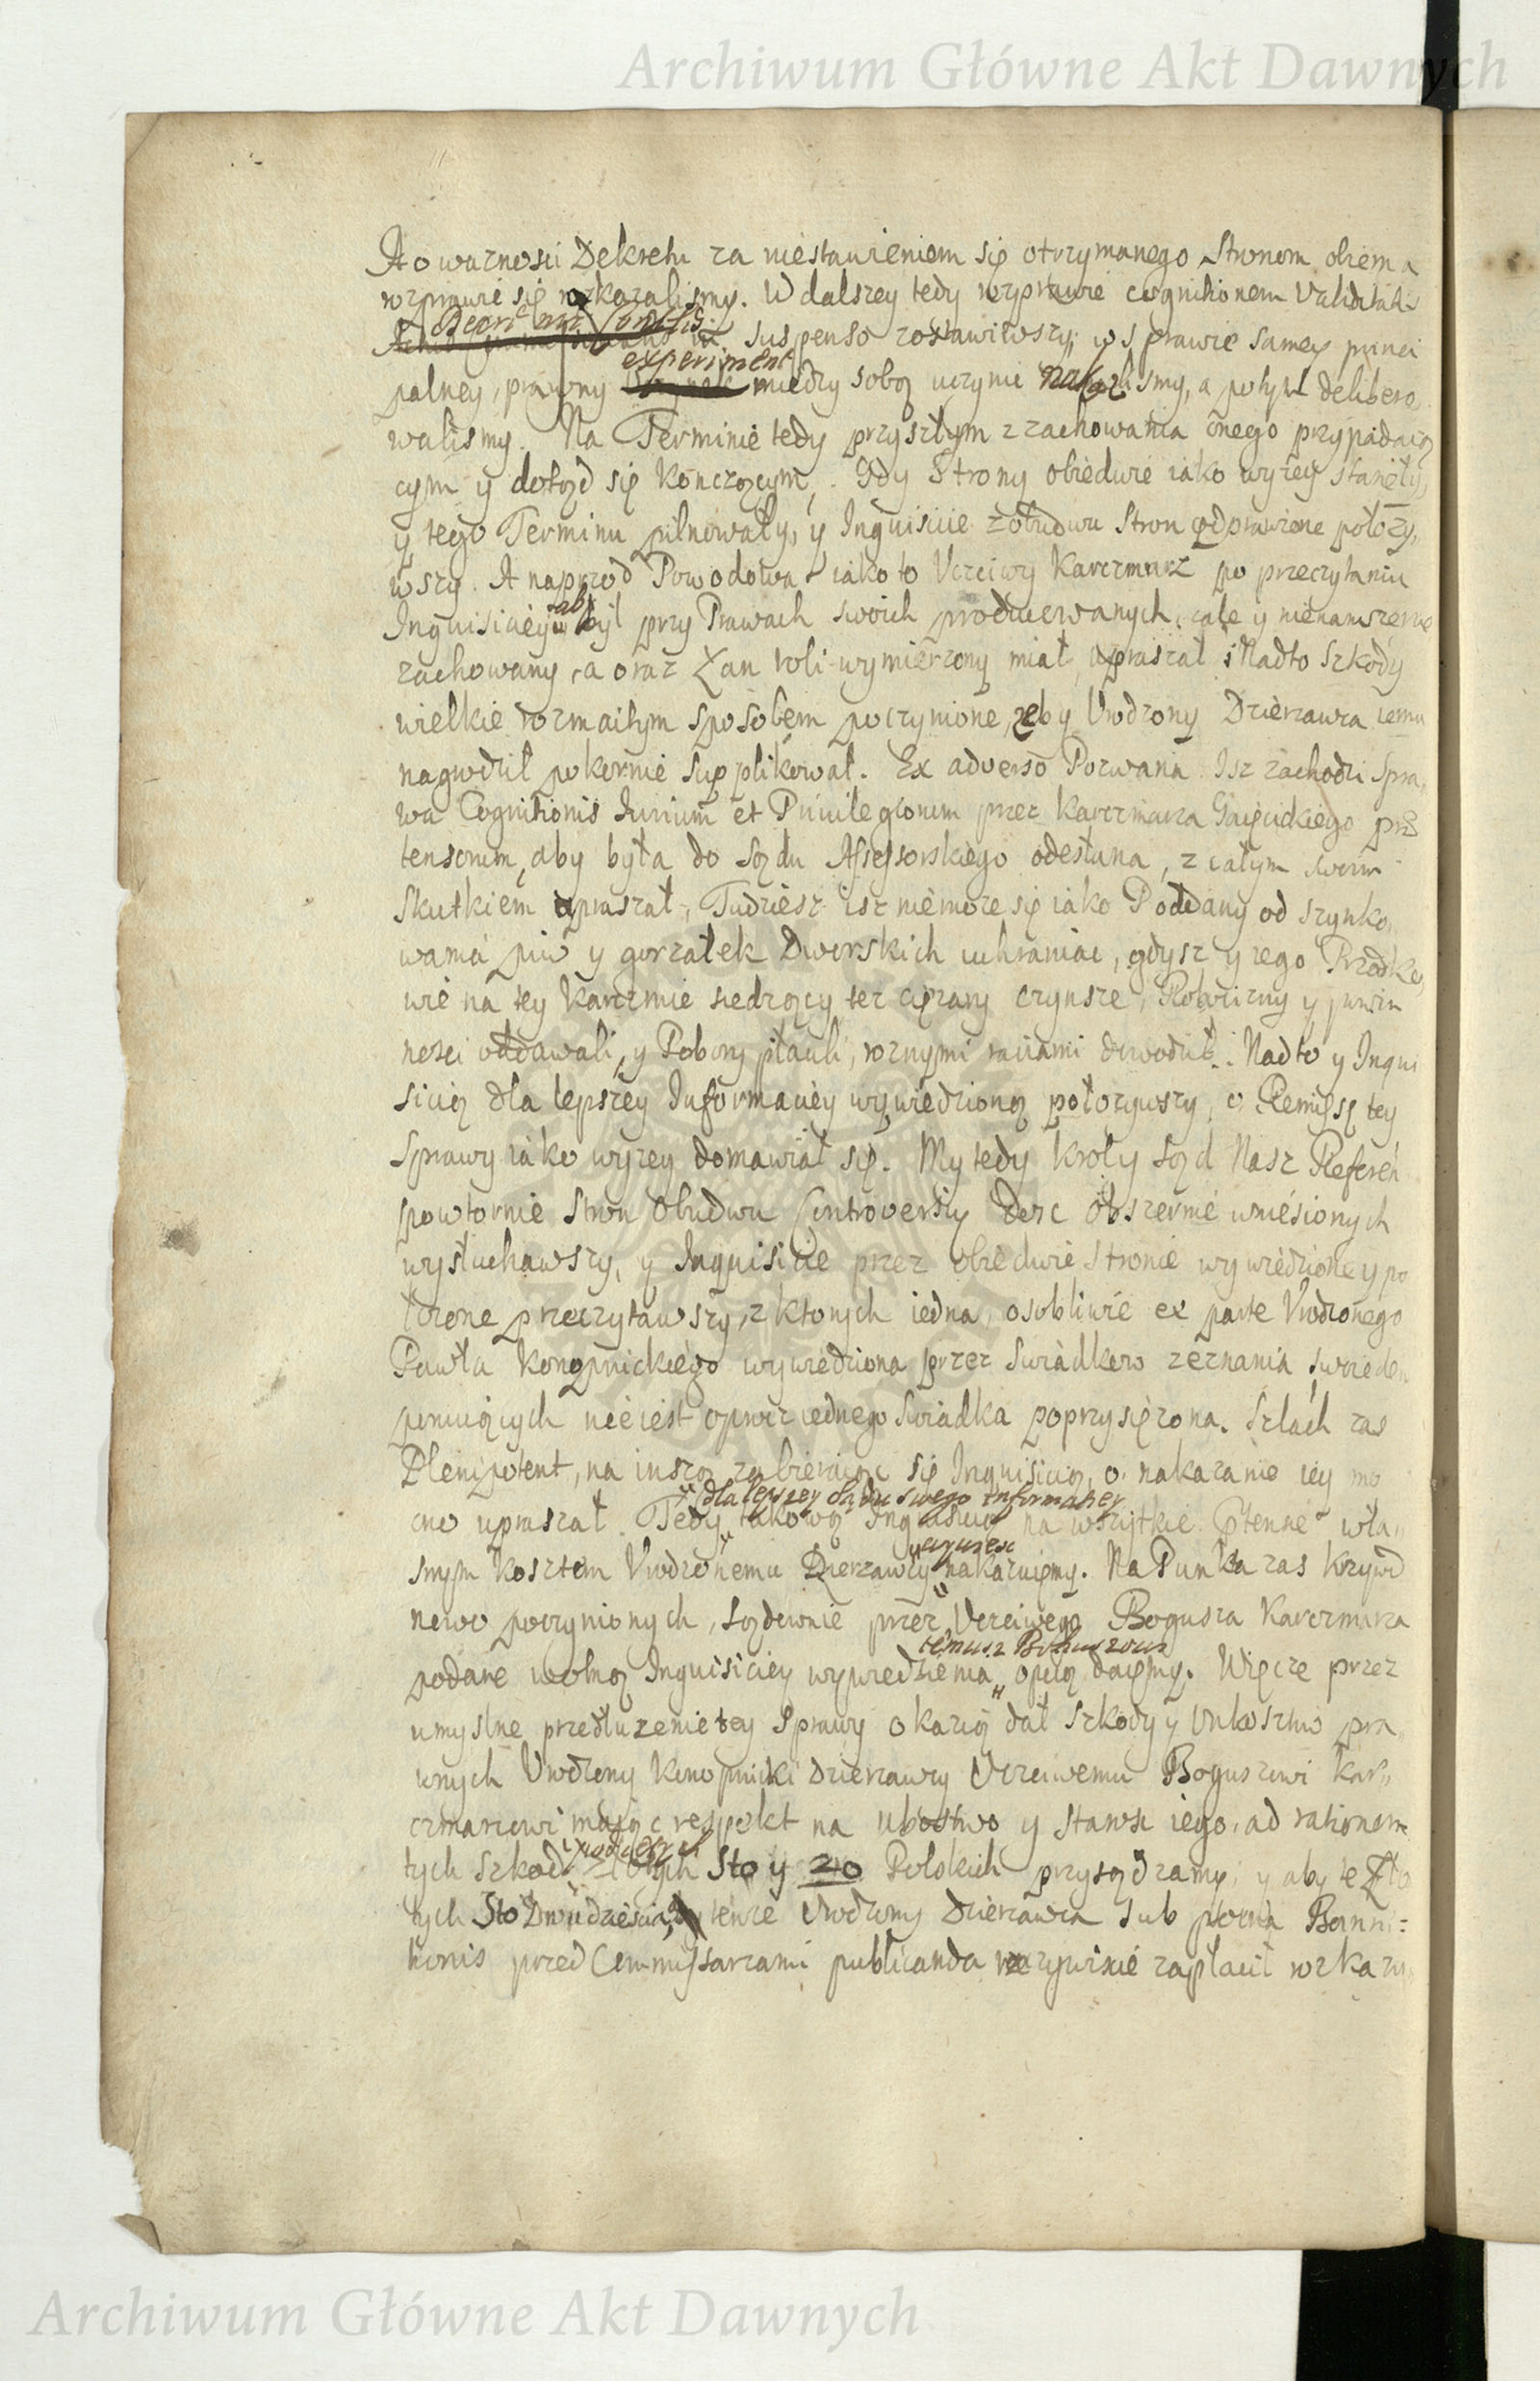 Archiwum Główne Akt Dawnych
A o waznosci Dekretu za niestawieniem się otrzymanego Stronom obiema
rozprawić się roskazalismy. W dalszey tedy rozprawie cognitionem Validitatis
in suspenso zostawiwszy, w sprawie samey princi
experiment
palney, prawny między sobą uczynić nakazalismy, a potym delibero,
walismy. Na Terminie tedy przyszłym z zachowania onego przypadaią
cym y dotąd się konczącym, Gdy Strony obiedwie iako wyzey stanęły,
y tego Terminu pilnowały, y Inquisicie z obudwu Stron odprawione położy,
wszy. A naprzod Powodowa iako to Uczciwy Karczmarz po przeczytaniu
Inquisiciey aby był przy Prawach swoich producowanych, cale y nienaruszenie
zachowany, a oraz Łan roli wymierzony miał, upraszał, Nadto Szkody
wielkie rozmaitym sposobem poczynione, zeby Urodzony Dzierzawca iemu
nagrodził pokornie supplikował. Ex adverso Pozwana Isz zachodzi Spra,
wa Cognitionis Iurium et Privilegiorum przez Karczmarza Gaięcickiego prae
tensorum, aby była do Sądu Assessorskiego odesłana, z całym swoim
Skutkiem upraszał, Tudziesz isz niemoze się iako Poddany od szynko,
wania piw y gorzałek Dworskich uchraniac, gdysz y iego Przodko,
wie na tey Karczmie siedzący tez cięzary czynsze, Robocizny y powin
nosci oddawali, y Pobory płacili, roznymi raciami dowodził. Nadto y Inqui
sicią dla lepszey Informaciey wywiedzioną położywszy, o Remissę tey
Sprawy iako wyzey domawiał się. My tedy Krol y Sąd Nasz Referen
powtornie Stron obudwu Controversiy dosc obszernie wniesionych
wysłuchawszy, y Inquisicie przez obiedwie Stronie wywiedzione y po
łozone przeczytawszy, z ktorych iedna, osobliwie ex parte Urodzonego
Pawła Konopnickiego wywiedziona przez Swiadkow zeznania swoie de
ponuiących nie iest oprocz iednego Swiadka poprzysięzona. Szlach zas
Plenipotent, na inszą zabieraiąc się Inquisicią, o nakazanie iey mo
dla lepszey Sądu swego informatiey
cno upraszał. Tedy takową Inquisicią na wszytkie własnym
czynic
kosztem Urodzonemu Dzierzawcy nakazuięmy. Na Punkta zas Krzywd
nowo poczynionych, Sądownie przez Uczciwego Bogusza Karczmarza
temusz Bohuszowi
podane wolną Inquisiciey wywiedzienia opcią daięmy. Więcze przez
umyslne przedłuzenie tey Sprawy okazią dał Szkody y Unkosztow pra,
wnych Urodzony Konopnicki Dzierzawcy Uczciwemu Boguszowi Kar,,
czmarzowi maiąc respekt na ubostwo y Stawse iego, ad rationem
tych Szkod Sto y 20 Polskich przysądzamy, y aby te Zło
tych Sto Dwudziescia, tenze Urodzony Dzierzawca sub poena Banni:
tionis przed Commissarzami publicanda rzeczywiscie zapłacił wskazu,
Archiwum Główne Akt Dawnych